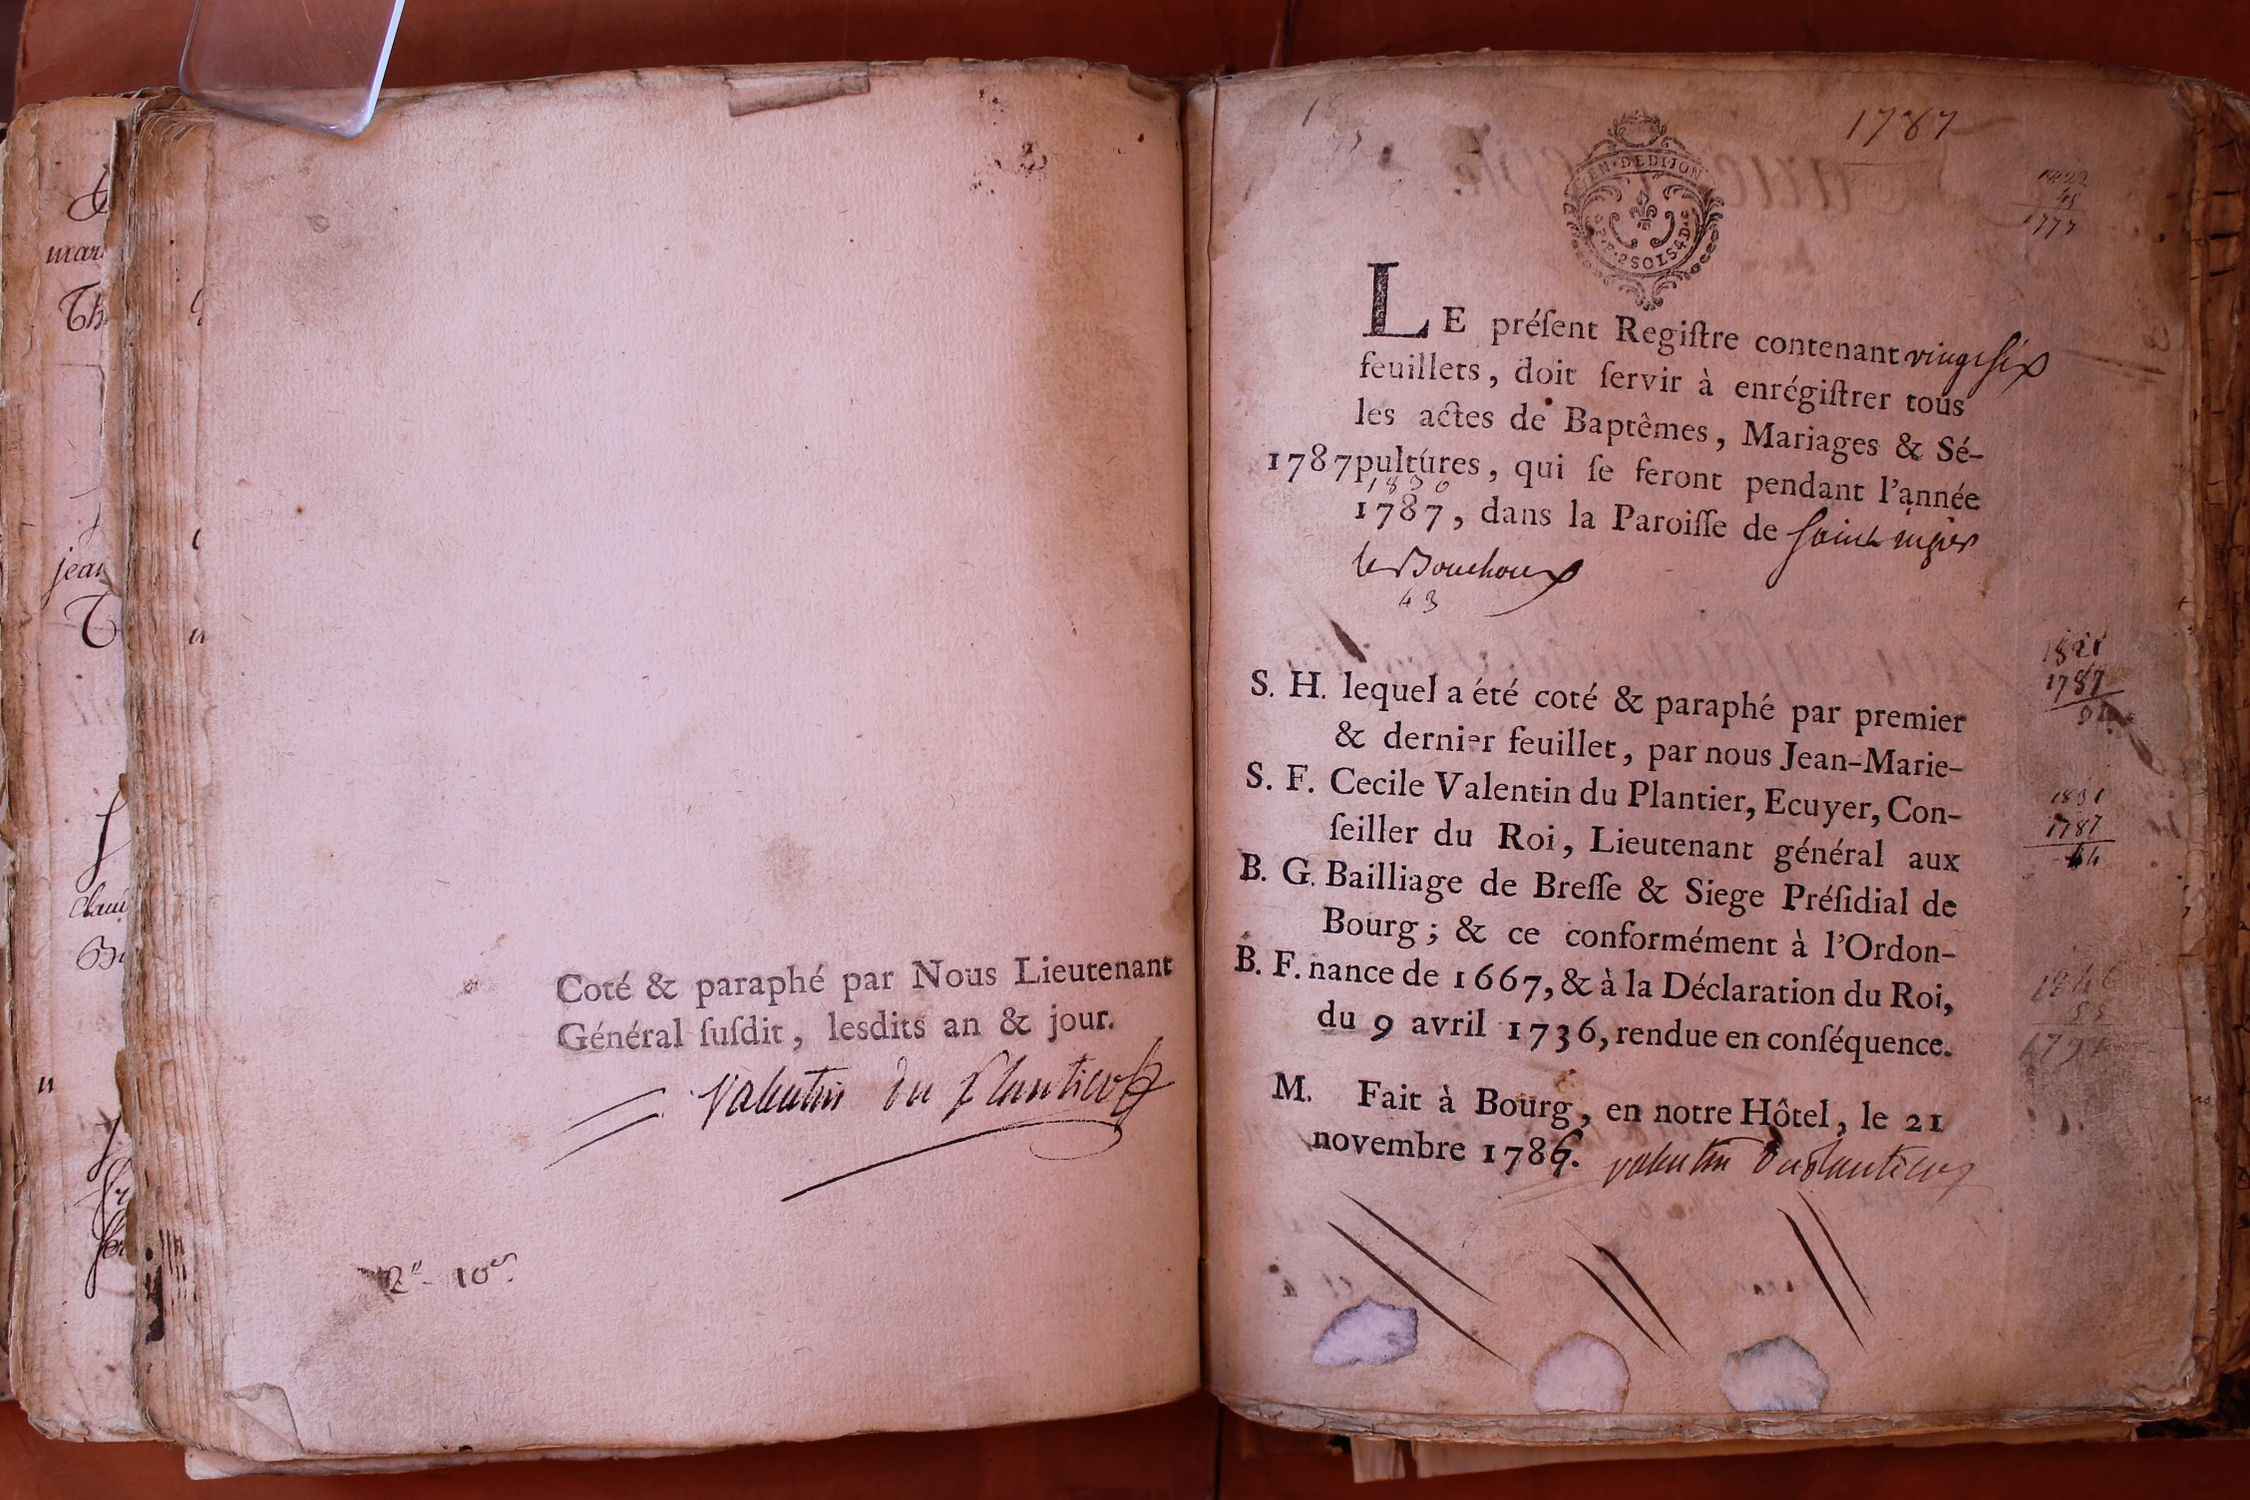 mar
Th
jean
Coté & paraphé par Nous Lieutenant
Général ſuſdit, lesdits an & jour.
Valentin du plantier
2 10
1787
GEN·DEDIJON
2SOLS4D
1822
45
1777
LE préſent Regiſtre contenant vingt ſix
feuillets, doit ſervir à enrégiſtrer tous
les actes de Baptêmes, Mariages & Sé-
1787 pultures, qui ſe feront pendant l'année
1830
1787, dans la Paroiſſe de Saint nizier
le Bouchoux
43
S. H. lequel a été coté & paraphé par premier
& dernier feuillet, par nous Jean-Marie-
S. F. Cecile Valentin du Plantier, Ecuyer, Con-
ſeiller du Roi, Lieutenant général aux
B. G. Bailliage de Breſſe & Siege Préſidial de
Bourg; & ce conformément à l'Ordon-
B. F. nance de 1667, & à la Déclaration du Roi,
du 9 avril 1736, rendue en conſéquence.
M. Fait à Bourg, en notre Hôtel, le 21
novembre 1786. valentin duplantier
1821
1787
1831
1787
44
1846
55